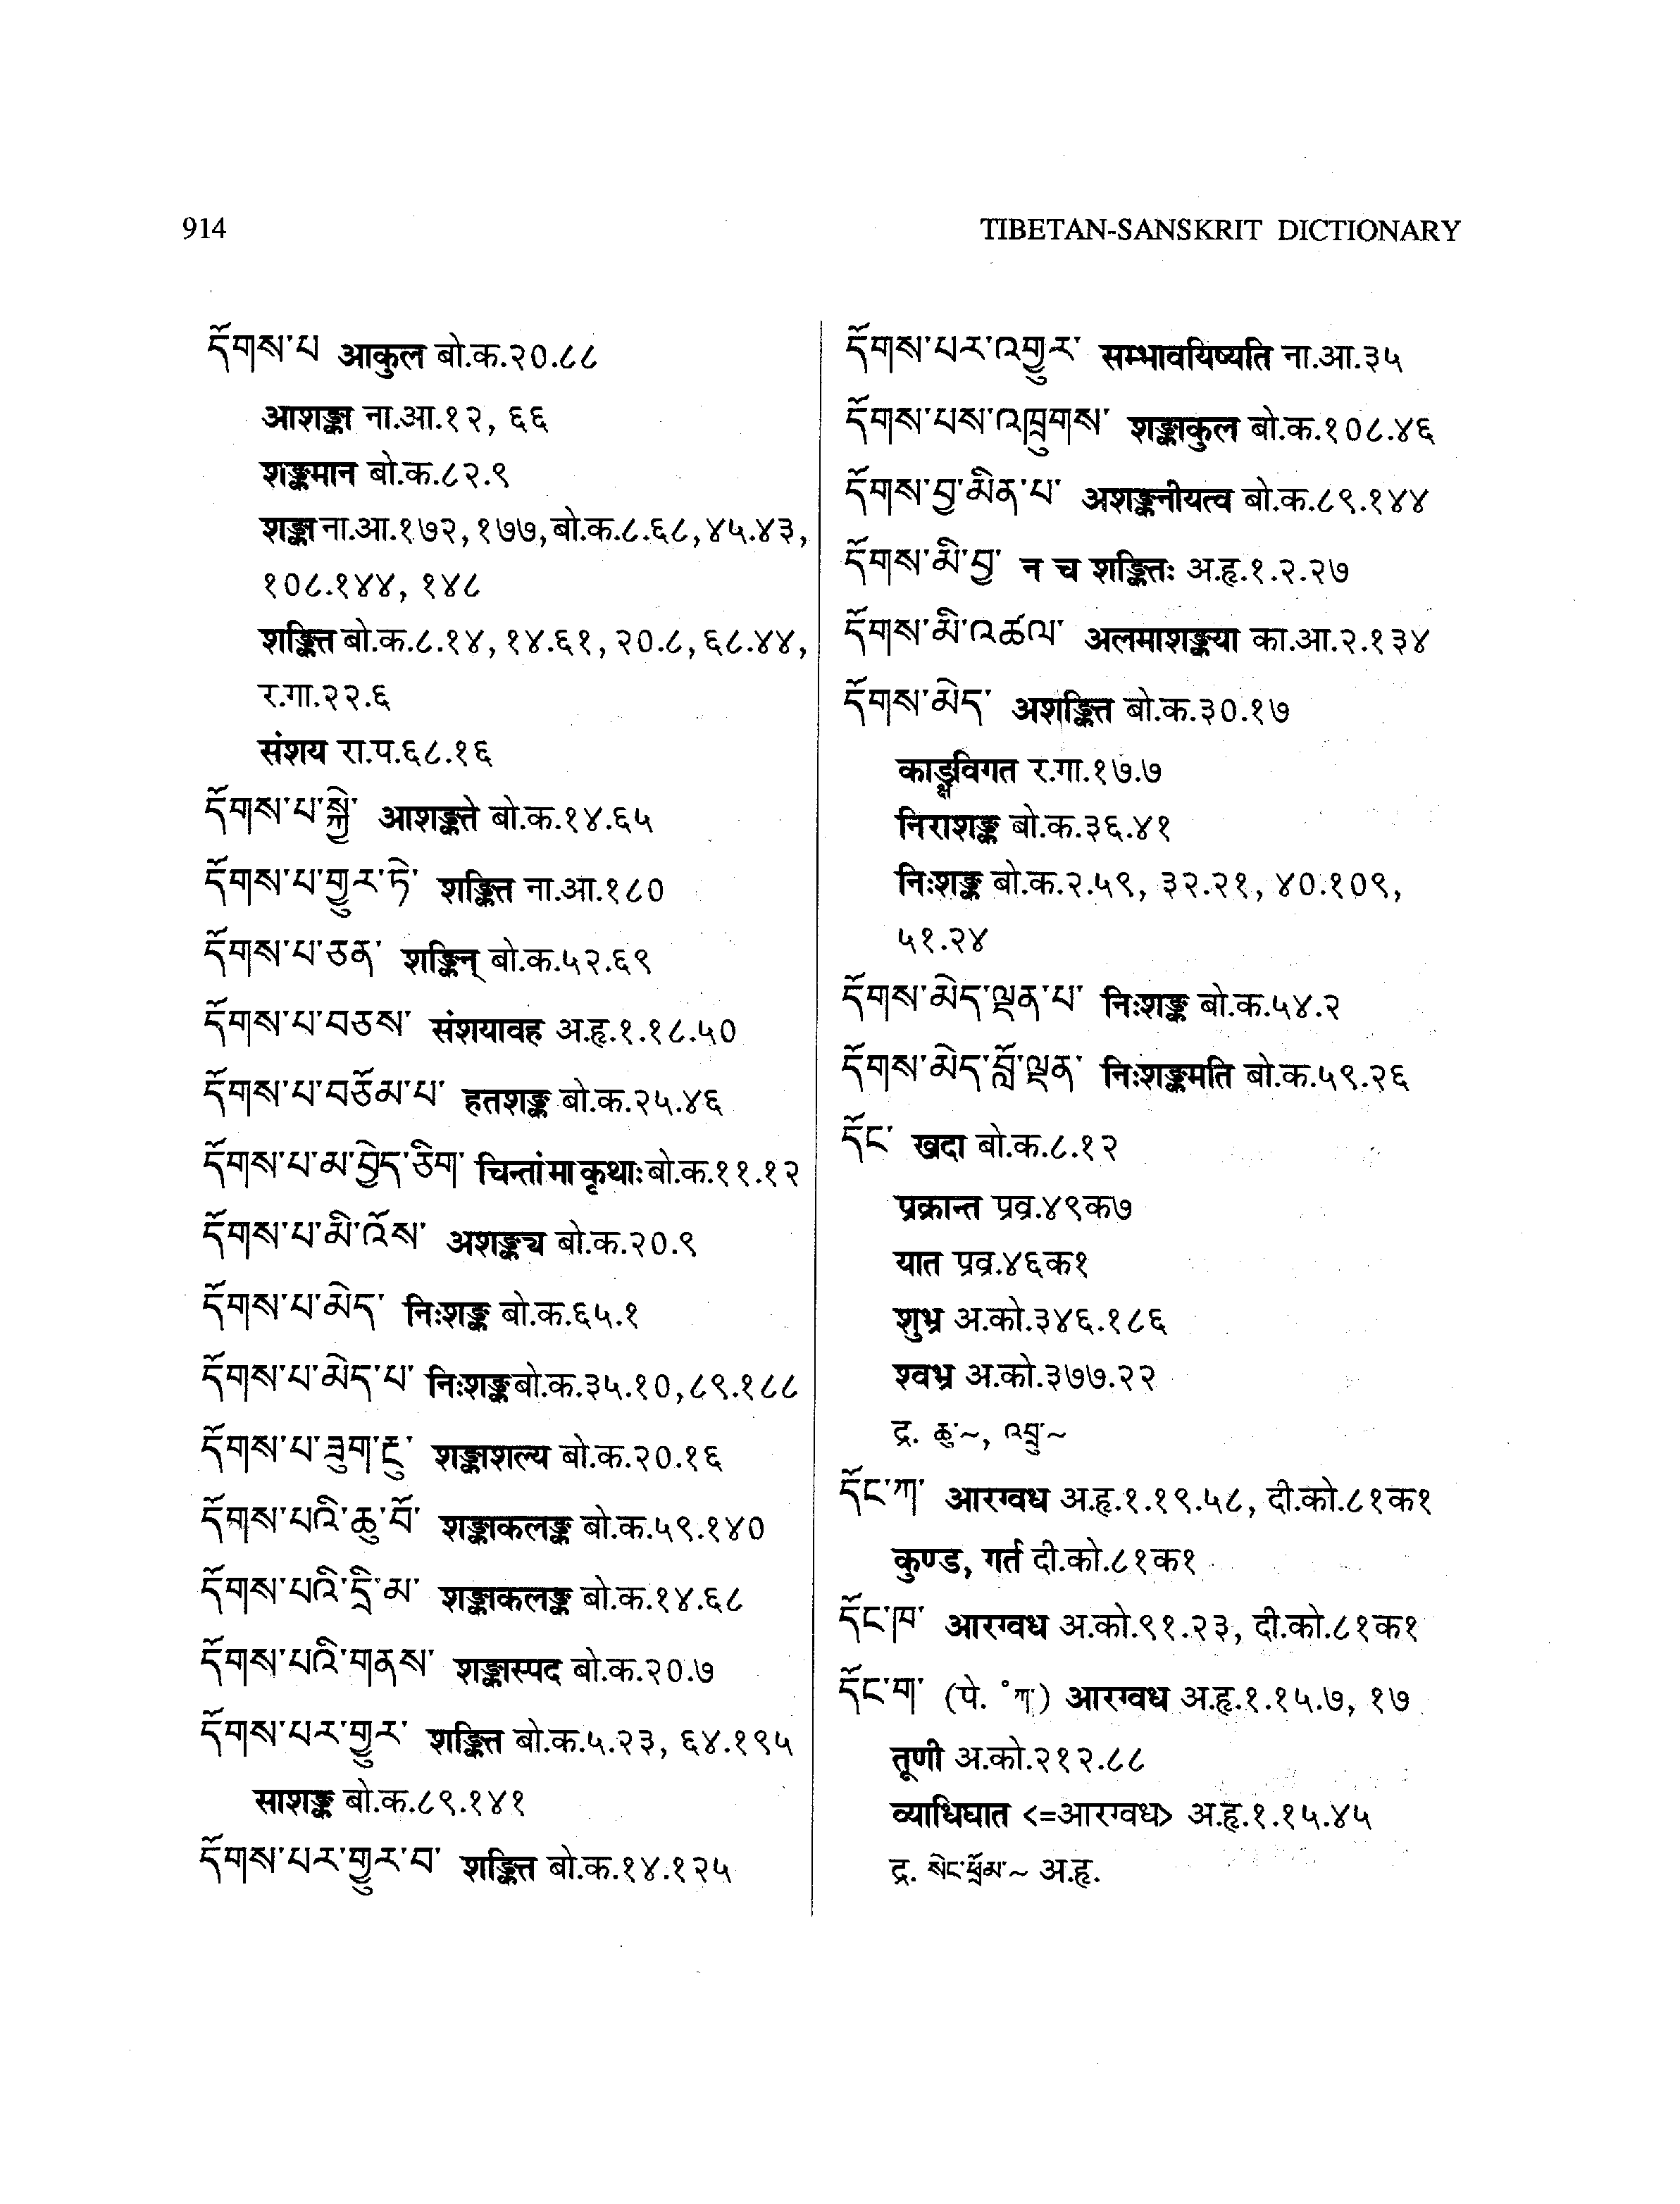 914
TIBETAN-SANSKRIT DICTIONARY
དོགས་པ आकुल बो.क.२०.८८
आशङ्का ना.आ.१२, ६६
शङ्कमान बो.क.८२.९
शङ्का ना.आ.१७२,१७७,बो.क.८.६८,४५.४३,
१०८.१४४, १४८
शङ्कित बो.क.८.१४,१४.६१,२०.८,६८.४४,
र.गा.२२.६
संशय रा.प.६८.१६
དོགས་པ་སྐྱེ་ आशङ्कते बो.क.१४.६५
དོགས་པ་གྱུར་ཏེ་ शङ्कित ना.आ.१८०
དོགས་པ་ཅན་ शङ्किन् बो.क.५२.६९
དོགས་པ་བཅས་ संशयावह अ.हृ.१.१८.५०
དོགས་པ་བཅོམ་པ་ हतशङ्क बो.क.२५.४६
དོགས་པ་མ་བྱེད་ཅིག་ चिन्तां मा कृथाः बो.क.११.१२
དོགས་པ་མི་འོས་ अशङ्क्य बो.क.२०.९
དོགས་པ་མེད་ निःशङ्क बो.क.६५.१
དོགས་པ་མེད་པ་ निःशङ्क बो.क.३५.१०,८९.१८८
དོགས་པ་ཟུག་རྔུ་ शङ्काशल्य बो.क.२०.१६
དོགས་པའི་ཆུ་བོ་ शङ्काकलङ्क बो.क.५९.१४०
དོགས་པའི་དྲི་མ་ शङ्काकलङ्क बो.क.१४.६८
དོགས་པའི་གནས་ शङ्कास्पद बो.क.२०.७
དོགས་པར་གྱུར་ शङ्कित बो.क.५.२३, ६४.१९५
साशङ्क बो.क.८९.१४१
དོགས་པར་གྱུར་བ་ शङ्कित बो.क.१४.१२५
དོགས་པར་འགྱུར་ सम्भावयिष्यति ना.आ.३५
དོགས་པས་འཁྲུགས་ शङ्काकुल बो.क.१०८.४६
དོགས་བྱ་མིན་པ་ अशङ्कनीयत्व बो.क.८९.१४४
དོགས་མི་བྱ་ न च शङ्कितः अ.हृ.१.२.२७
དོགས་མི་འཚལ་ अलमाशङ्कया का.आ.२.१३४
དོགས་མེད་ अशङ्कित बो.क.३०.१७
काङ्क्षविगत र.गा.१७.७
निराशङ्क बो.क.३६.४१
निःशङ्क बो.क.२.५९, ३२.२१, ४०.१०९,
५१.२४
དོགས་མེད་ལྡན་པ་ निःशङ्क बो.क.५४.२
དོགས་མེད་བློ་ལྡན་ निःशङ्कमति बो.क.५९.२६
དོང་ खदा बो.क.८.१२
प्रक्रान्त प्रव्र.४९क७
यात प्रव्र.४६क१
शुभ्र अ.को.३४६.१८६
श्वभ्र अ.को.३७७.२२
द्र. ཆུ་~, འབྲུ་~
དོང་ཀ་ आरग्वध अ.हृ.१.१९.५८, दी.को.८१क१
कुण्ड, गर्त दी.को.८१क१
དོང་ཁ་ आरग्वध अ.को.९१.२३, दी.को.८१क१
དོང་ག་ (पे. °ཀ་) आरग्वध अ.हृ.१.१५.७, १७
तूणी अ.को.२१२.८८
व्याधिघात <=आरग्वध> अ.हृ.१.१५.४५
द्र. སེང་ཕྲོམ་~ अ.हृ.